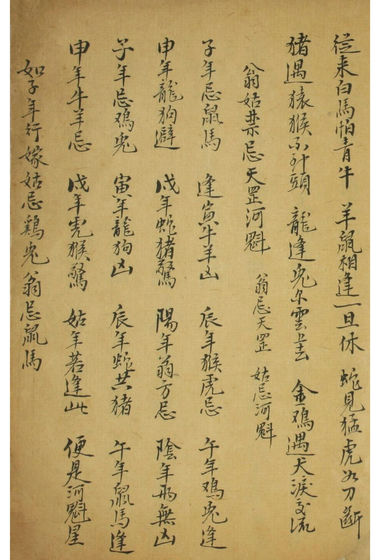 從来白馬怕青牛 羊鼠相逢一旦休 蛇見猛虎如刀斷
猪遇猿猴不到頭 龍逢兎雲去 金鸡遇犬淚交流
翁姑禁忌天罡河魁 翁忌天罡 姑忌河魁
子年忌鼠馬 逢寅牛羊凶 辰年猴虎忌 午年鸡兎逢
申年龍狗避 戌年蛇猪驚 陽年翁方忌 陰年無凶
子年忌鸡兎 寅年龍狗凶 辰年蛇共猪 午年鼠馬逢
申年牛羊忌 戌年虎猴驚 姑年若逢此 便是河魁星
如子年行嫁姑忌鷄兎翁忌鼠馬